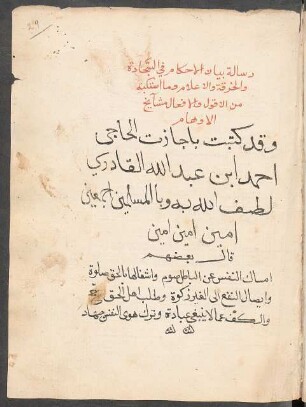 رسالة بيان الاحكام في السجادة
والخرقة والاعلام وما استكبه
من الاقوال والافعال مشايخ
الاوهام
وقد كتبت باجازت الحاجي
احمد ابن عبد الله القادري
لطف الله به وبالمسلمين اجمعين
امين امين امين
قال بعضهم
امساك النفس عن الباطل صوم واشغالها بالحق صلوة
وايصال النفع الى الغير زكوة وطلب اهل الحق حج
والكف عما لا ينبغي عبادة وترك هوى النفس جهاد